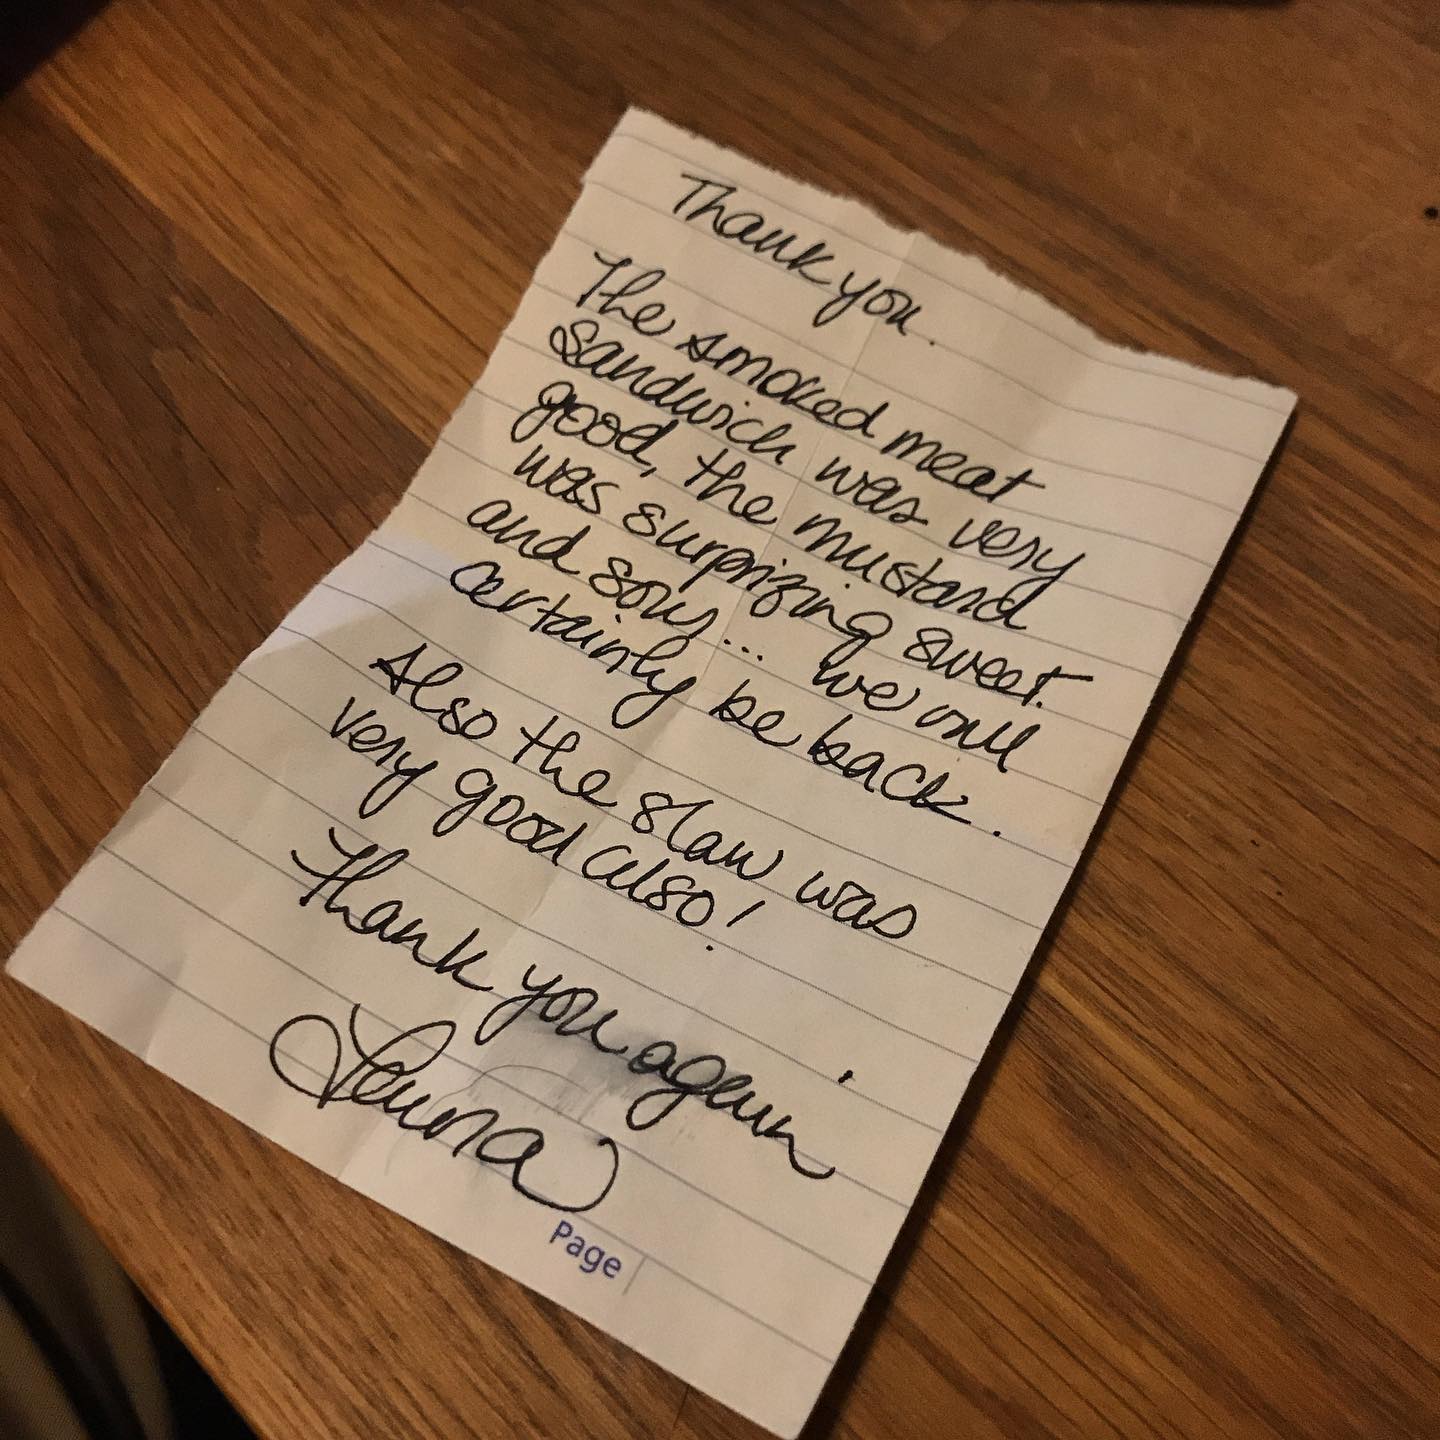 Thank you.
The smoked meat
sandwich was very
good, the mustard
was surprizing sweet
and sour... we will
certainly be back.
Also the slaw was
very good also!
Thank you again
Laura
Page